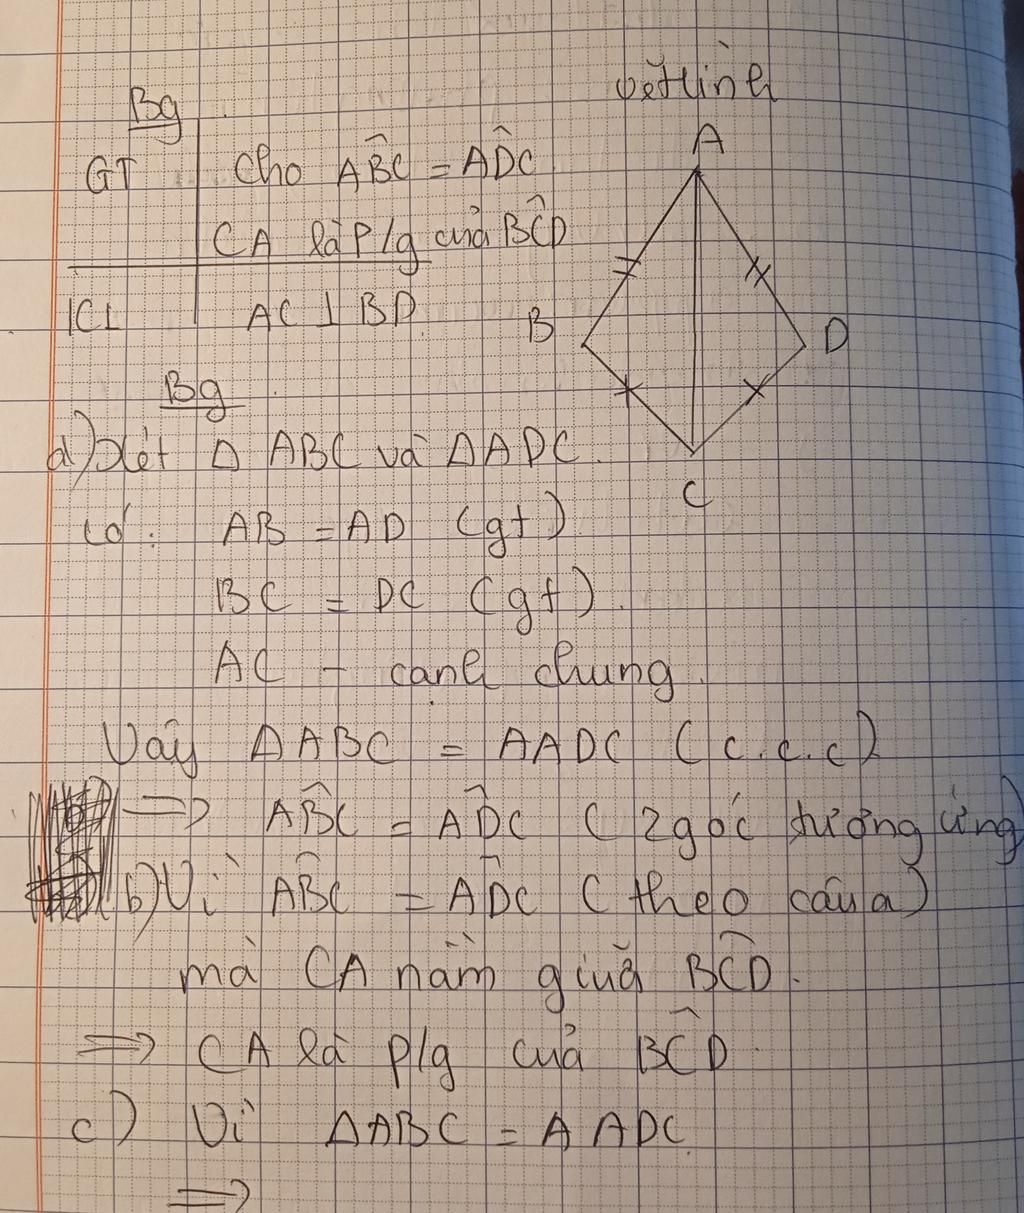 Bg
vẽ hình
GT Cho AB̂C = AD̂C
CA là P/g của BĈD
KL AC ⊥ BD
A
B
D
C
Bg
a) Xét Δ ABC và ΔADC
Có: AB = AD (gt)
BC = DC (gt).
AC - cạnh chung.
Vậy ΔABC = AADC (c.c.c)
=> AB̂C = AD̂C (2 góc tương ứng)
b) Vì AB̂C = AD̂C (theo câu a)
mà CA nằm giữa BĈD.
=> CA là p/g của BĈD.
c) Vì ΔABC = AADC.
=>